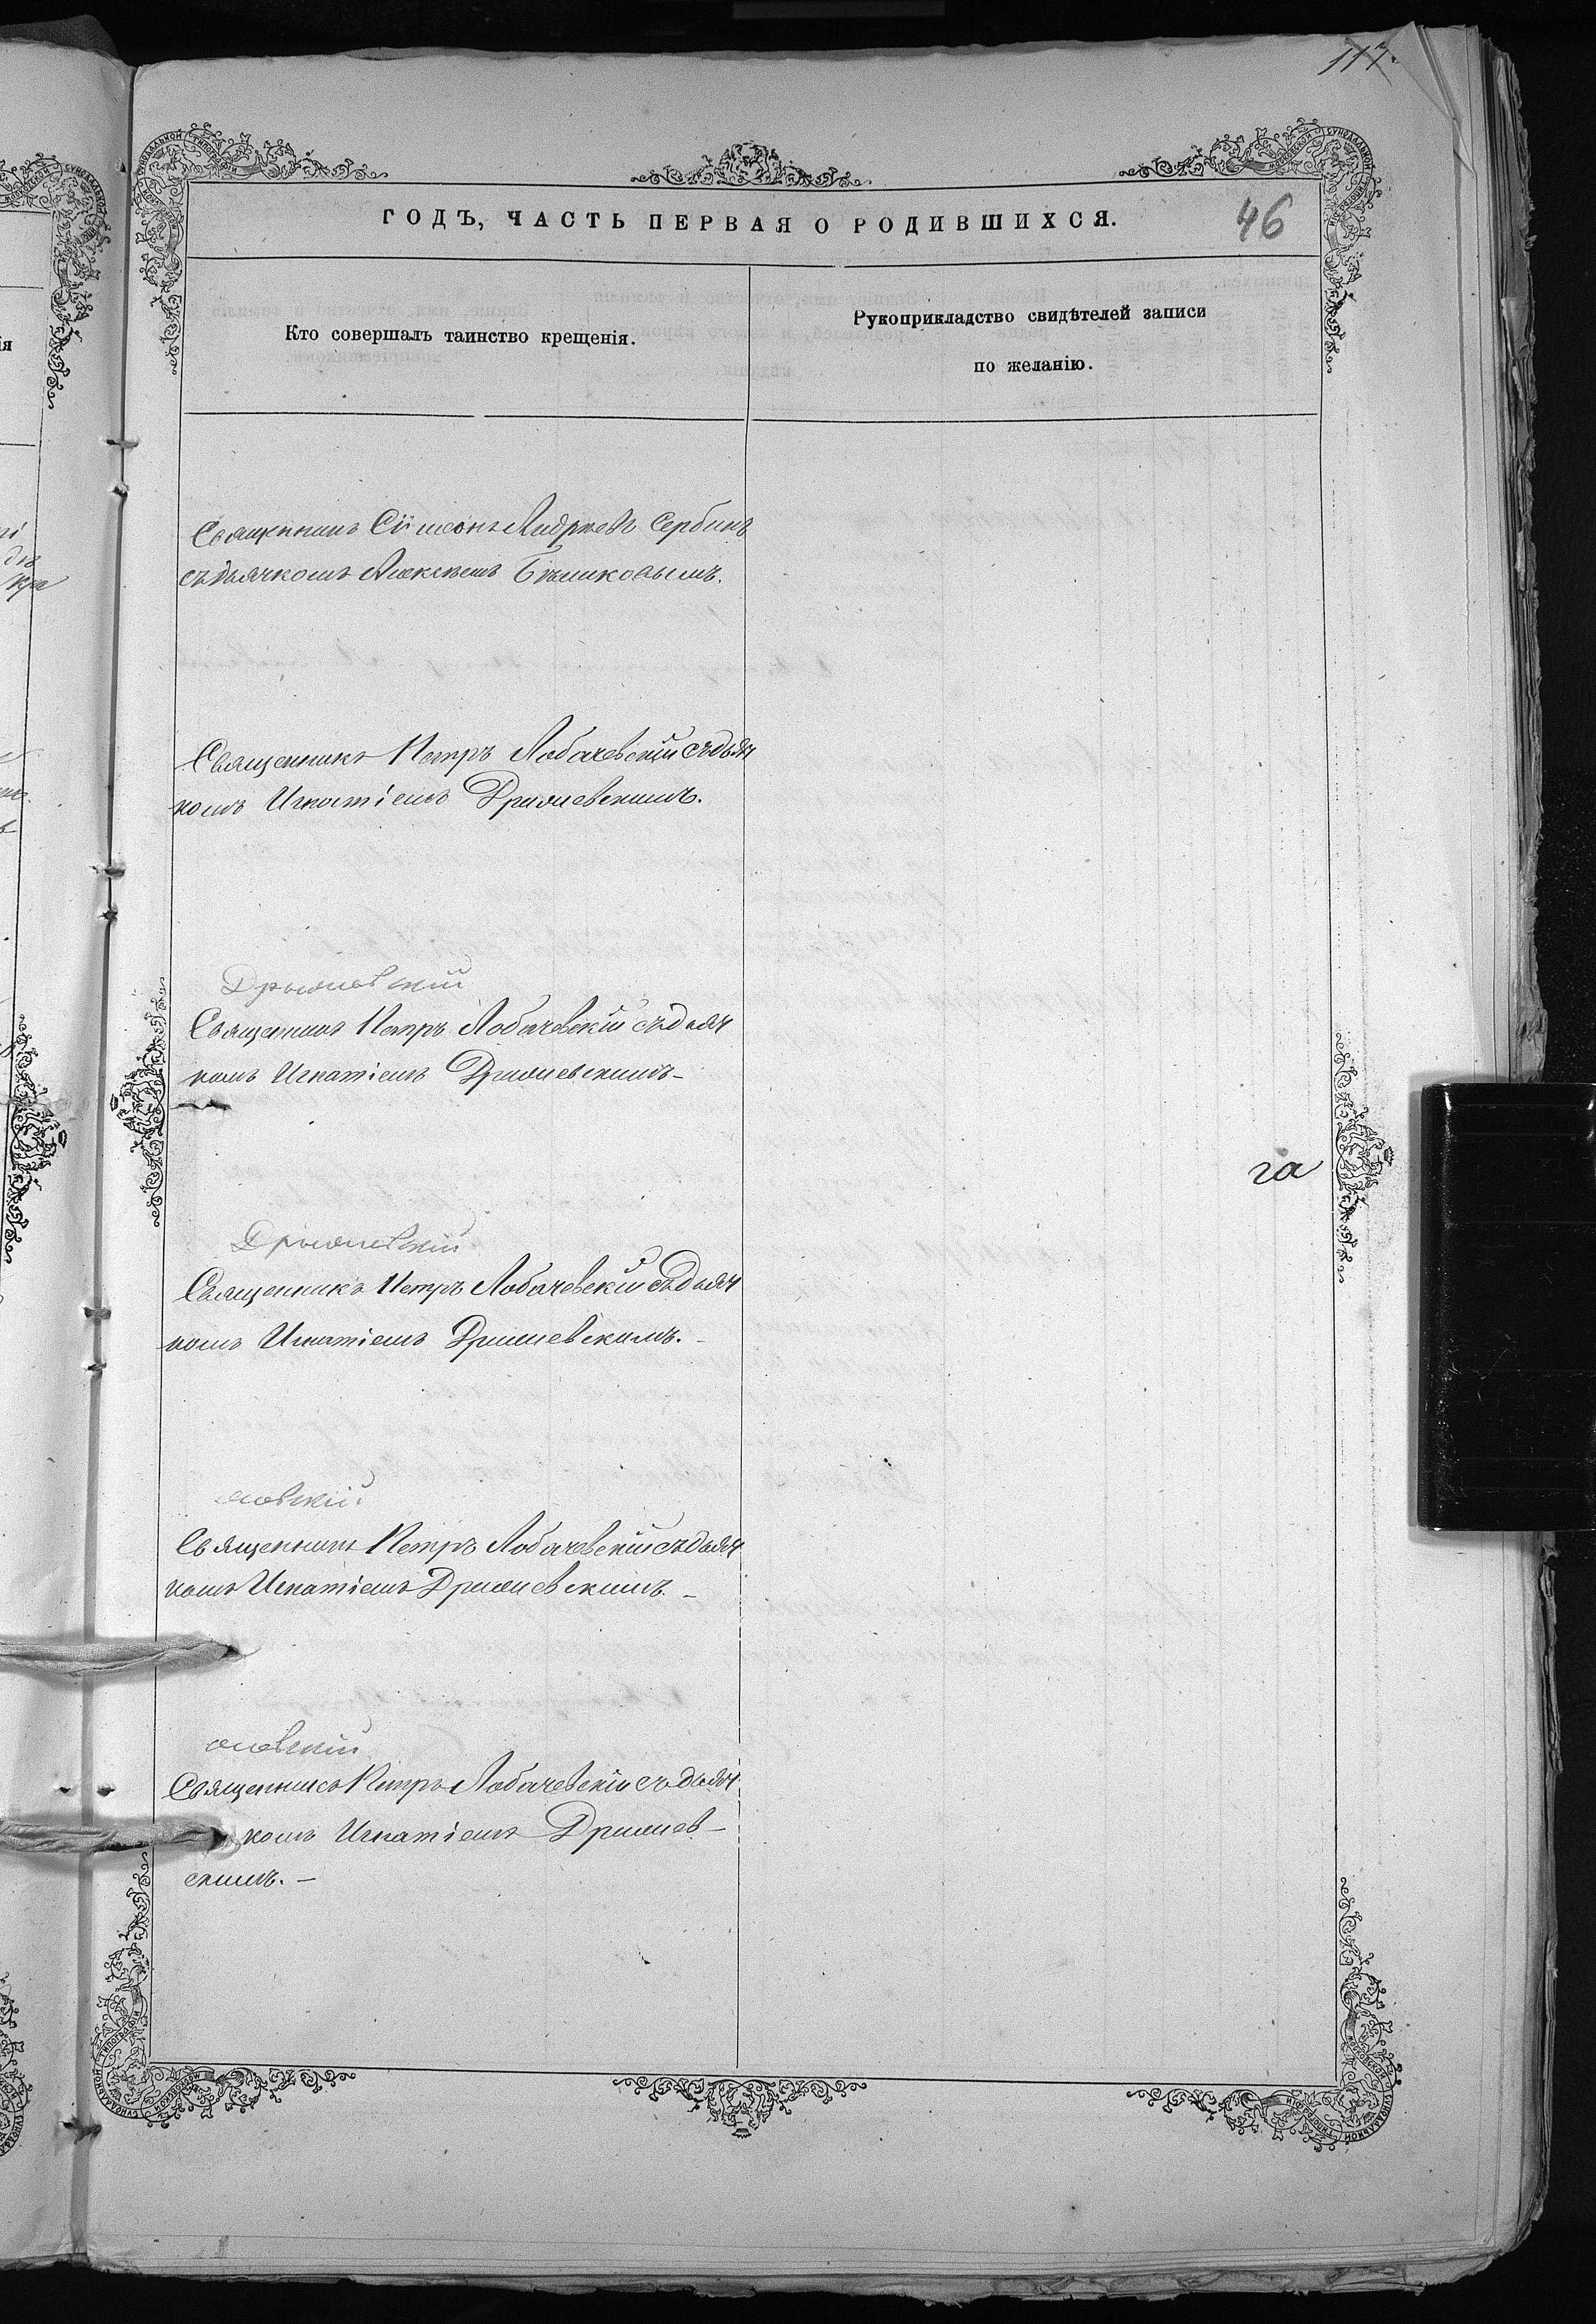 117.
ГОДЪ, ЧАСТЬ ПЕРВАЯ О РОДИВШИХСЯ.
46
Кто совершалъ таинство крещенія.
Рукоприкладство свидѣтелей записи
по желанію.
Священникъ Сѵмеонъ Андреевъ Сербинъ
съ дьячкомъ Алексѣемъ Бѣликовымъ.
Священникъ Петръ Лобачевскій съ дьяч
комъ Игнатіемъ
Священникъ Петръ Лобачевскій съ дьяч
комъ Игнатіемъ
га
Священникъ Петръ Лобачевскій съ дьяч
комъ Игнатіемъ
Священникъ Петръ Лобачевскій съ дьяч
комъ Игнатіемъ
Священникъ Петръ Лобачевскій съ дьяч
комъ Игнатіемъ
скимъ. —